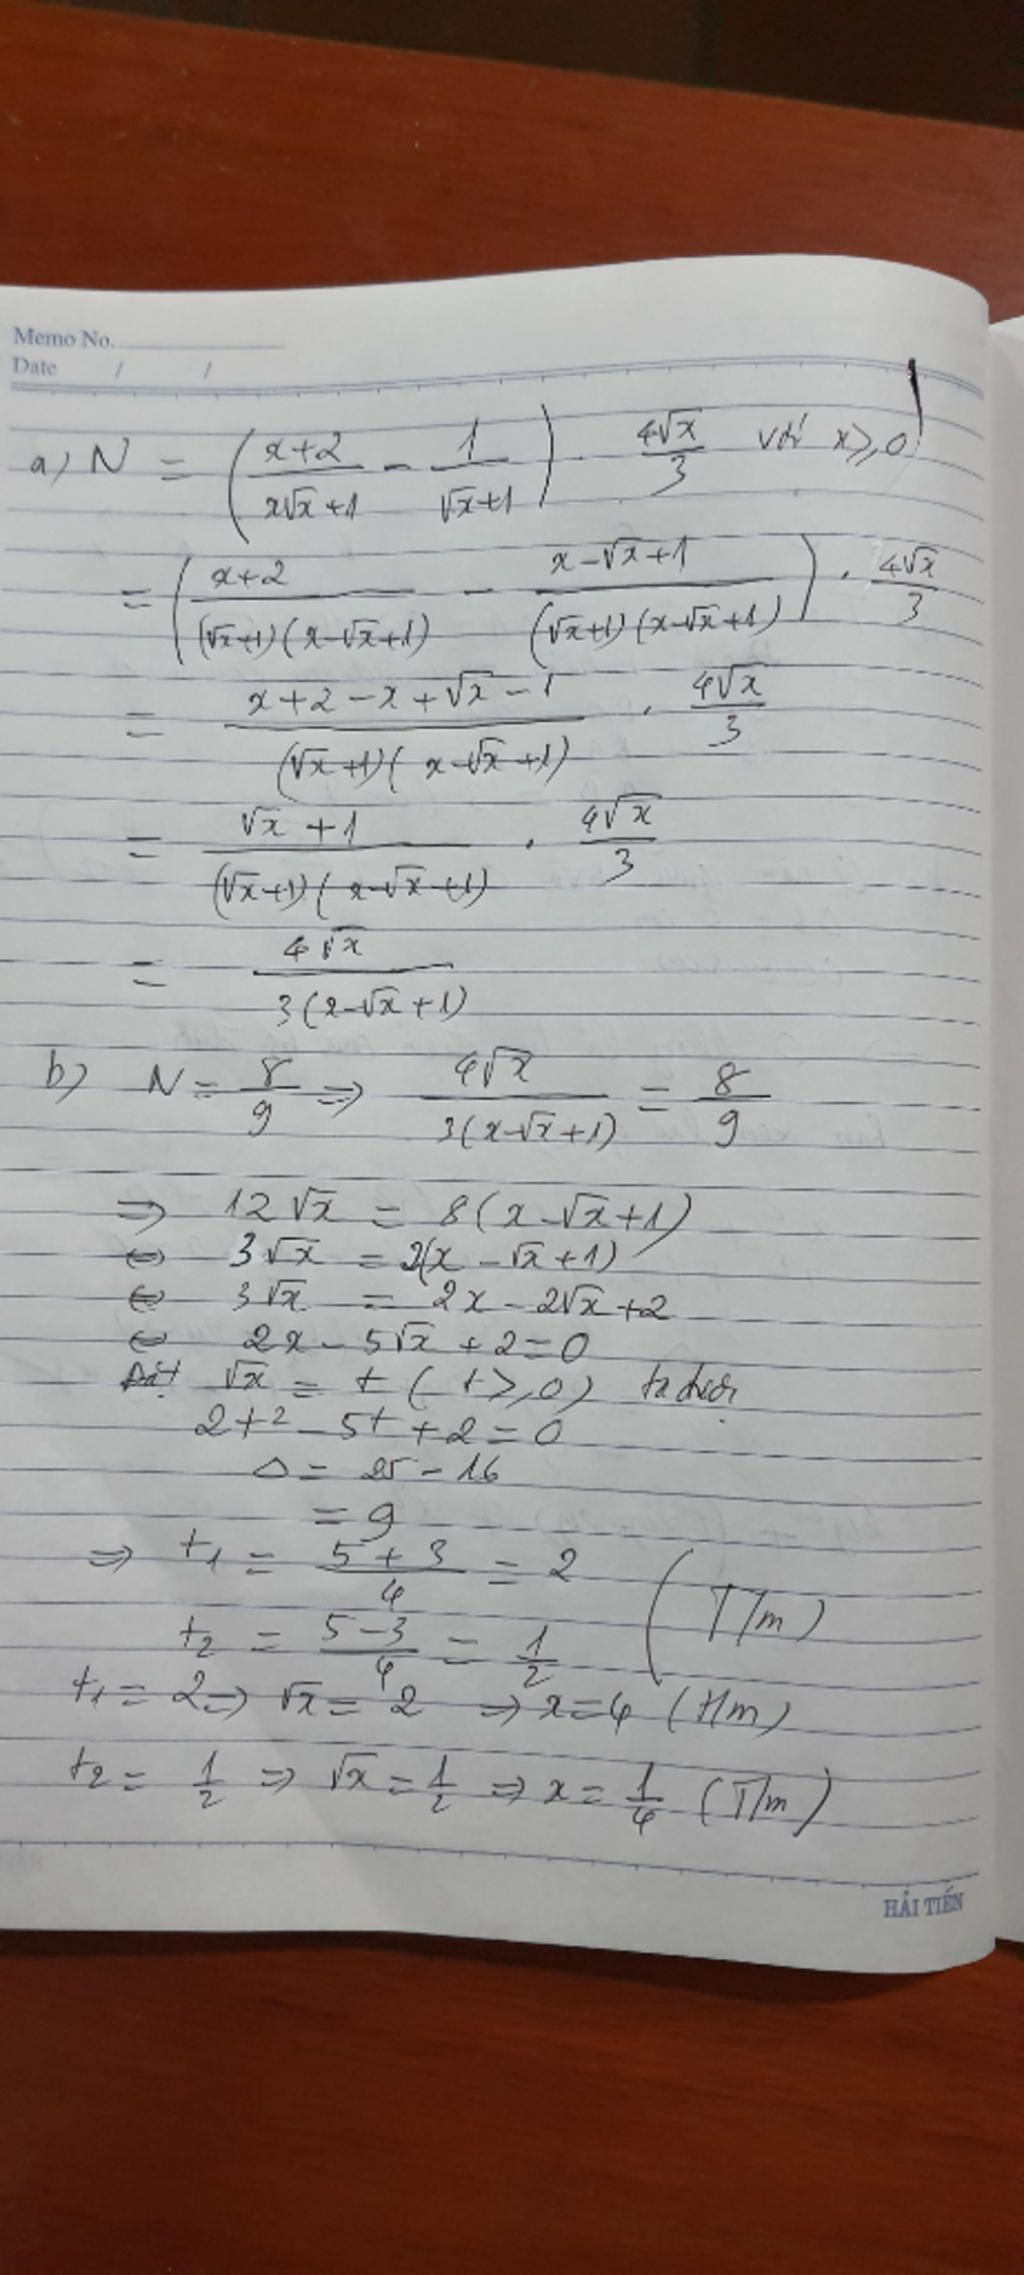 Memo No.
Date / /
a) N = ( (x+2)/(x√x+1) - 1/(√x+1) ) . 4√x/3 với x ≥ 0
= ( (x+2)/((√x+1)(x-√x+1)) - (x-√x+1)/((√x+1)(x-√x+1)) ) . 4√x/3
= (x+2-x+√x-1)/((√x+1)(x-√x+1)) . 4√x/3
= (√x+1)/((√x+1)(x-√x+1)) . 4√x/3
= 4√x/(3(x-√x+1))
b) N = 8/9 ⇒ 4√x/(3(x-√x+1)) = 8/9
⇒ 12√x = 8(x-√x+1)
⇔ 3√x = 2(x-√x+1)
⇔ 3√x = 2x-2√x+2
⇔ 2x-5√x+2=0
Đặt √x = t (t ≥ 0) ta được
2t² - 5t + 2 = 0
Δ = 25 - 16
= 9
⇒ t₁ = (5+3)/4 = 2
t₂ = (5-3)/4 = 1/2 (T/m)
t₁ = 2 ⇒ √x = 2 ⇒ x = 4 (t/m)
t₂ = 1/2 ⇒ √x = 1/2 ⇒ x = 1/4 (T/m)
HẢI TIẾN